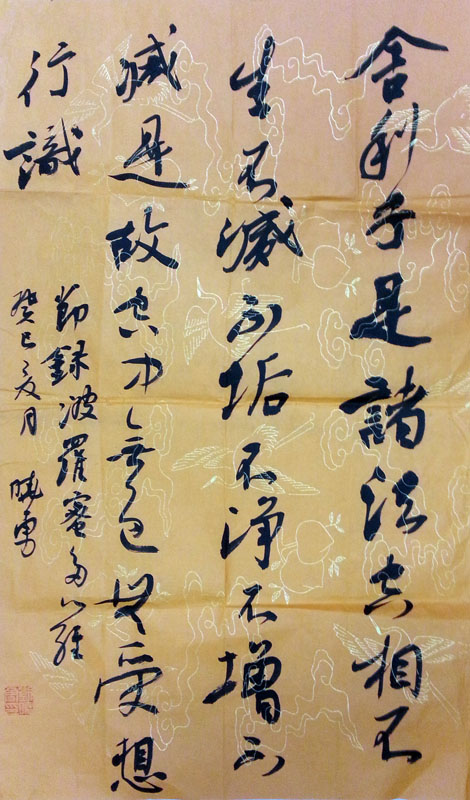 舍利子是諸法空相不
生不滅不垢不淨不增不
減是故空中無色無受想
行識
節錄波羅蜜多心經
癸巳夏月 曉勇